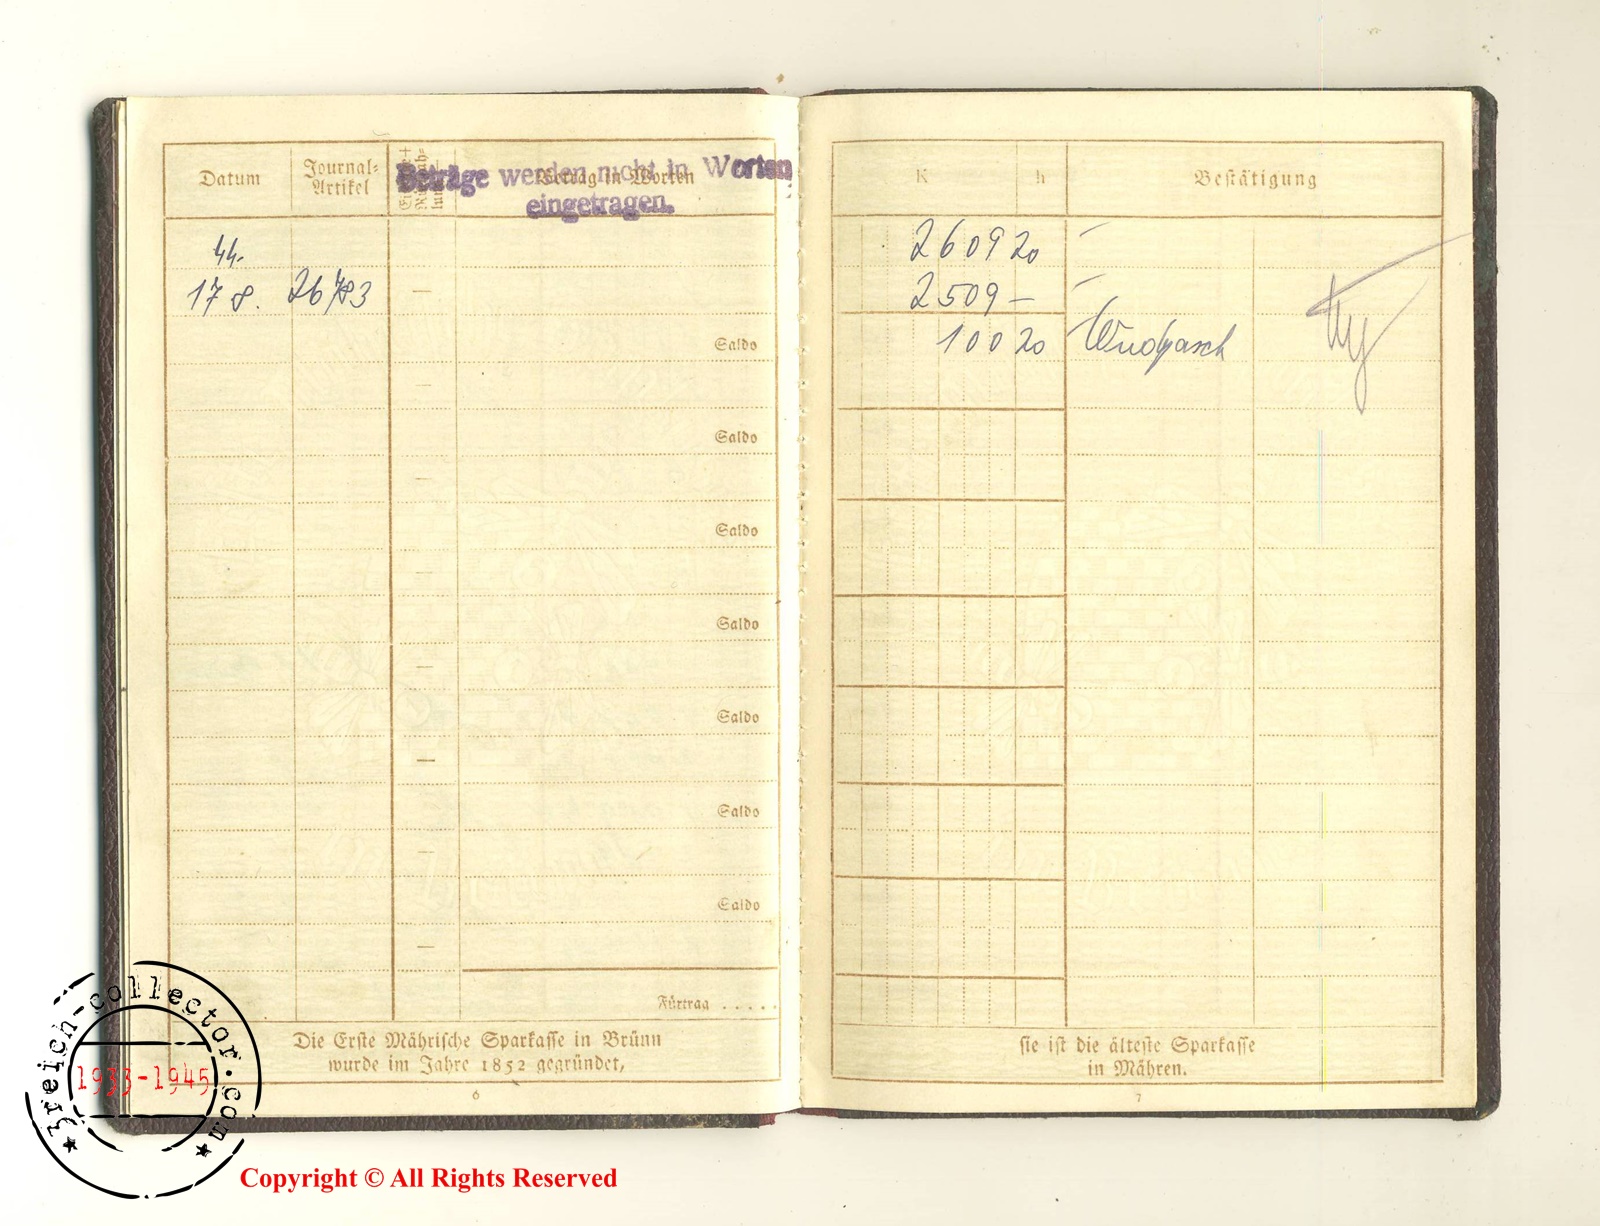 Datum
Journal-
Artikel
Betrag in Worten
Beträge werden nicht in Worten
eingetragen.
K h Bestätigung
44.
2609 20
17 8. — 2509 —
Saldo 100 20
Saldo
Saldo
Saldo
Saldo
Saldo
Saldo
Fürtrag . . . . .
Die Erste Mährische Sparkasse in Brünn
wurde im Jahre 1852 gegründet,
6
sie ist die älteste Sparkasse
in Mähren.
7
3reich-collector.com
1933-1945
Copyright © All Rights Reserved